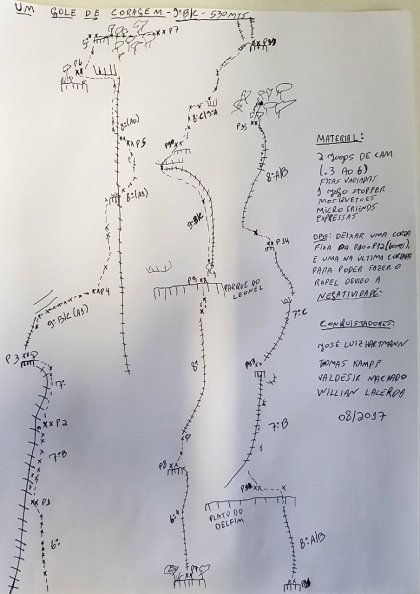 UM GOLE DE CORAGEM - 9ºB/C - 530MTS
P7
P6
8º(A0)
P5
8º(A0)
P4
9ºB/C(A0)
P3
7º
P2
7ºB
P1
6º
8ºC/9ºA
9ºB/C
P9
PARQUE DO
LEONEL
8º
P8
6º
P7
P15
8ºA/B
P14
7ºC
P13
7ºB
PLATO DO
DELFIM
8ºA/B
MATERIAL:
2 JOGOS DE CAM
(.3 AO 6)
FITAS VARIADAS
1 JOGO STOPPER
MOSQUETÕES
MICRO FRIENDS
EXPRESSAS
OBS: DEIXAR UMA CORDA
FIXA DA P10
E UMA NA ÚLTIMA CORDADA
PARA PODER FAZER O
RAPEL DEVIDO A
NEGATIVIDADE.
CONQUISTADORES:
JOSÉ LUIZ HARTMANN
TOMAS KAMPF
VALDESIR MACHADO
WILLIAN LACERDA
08/2017